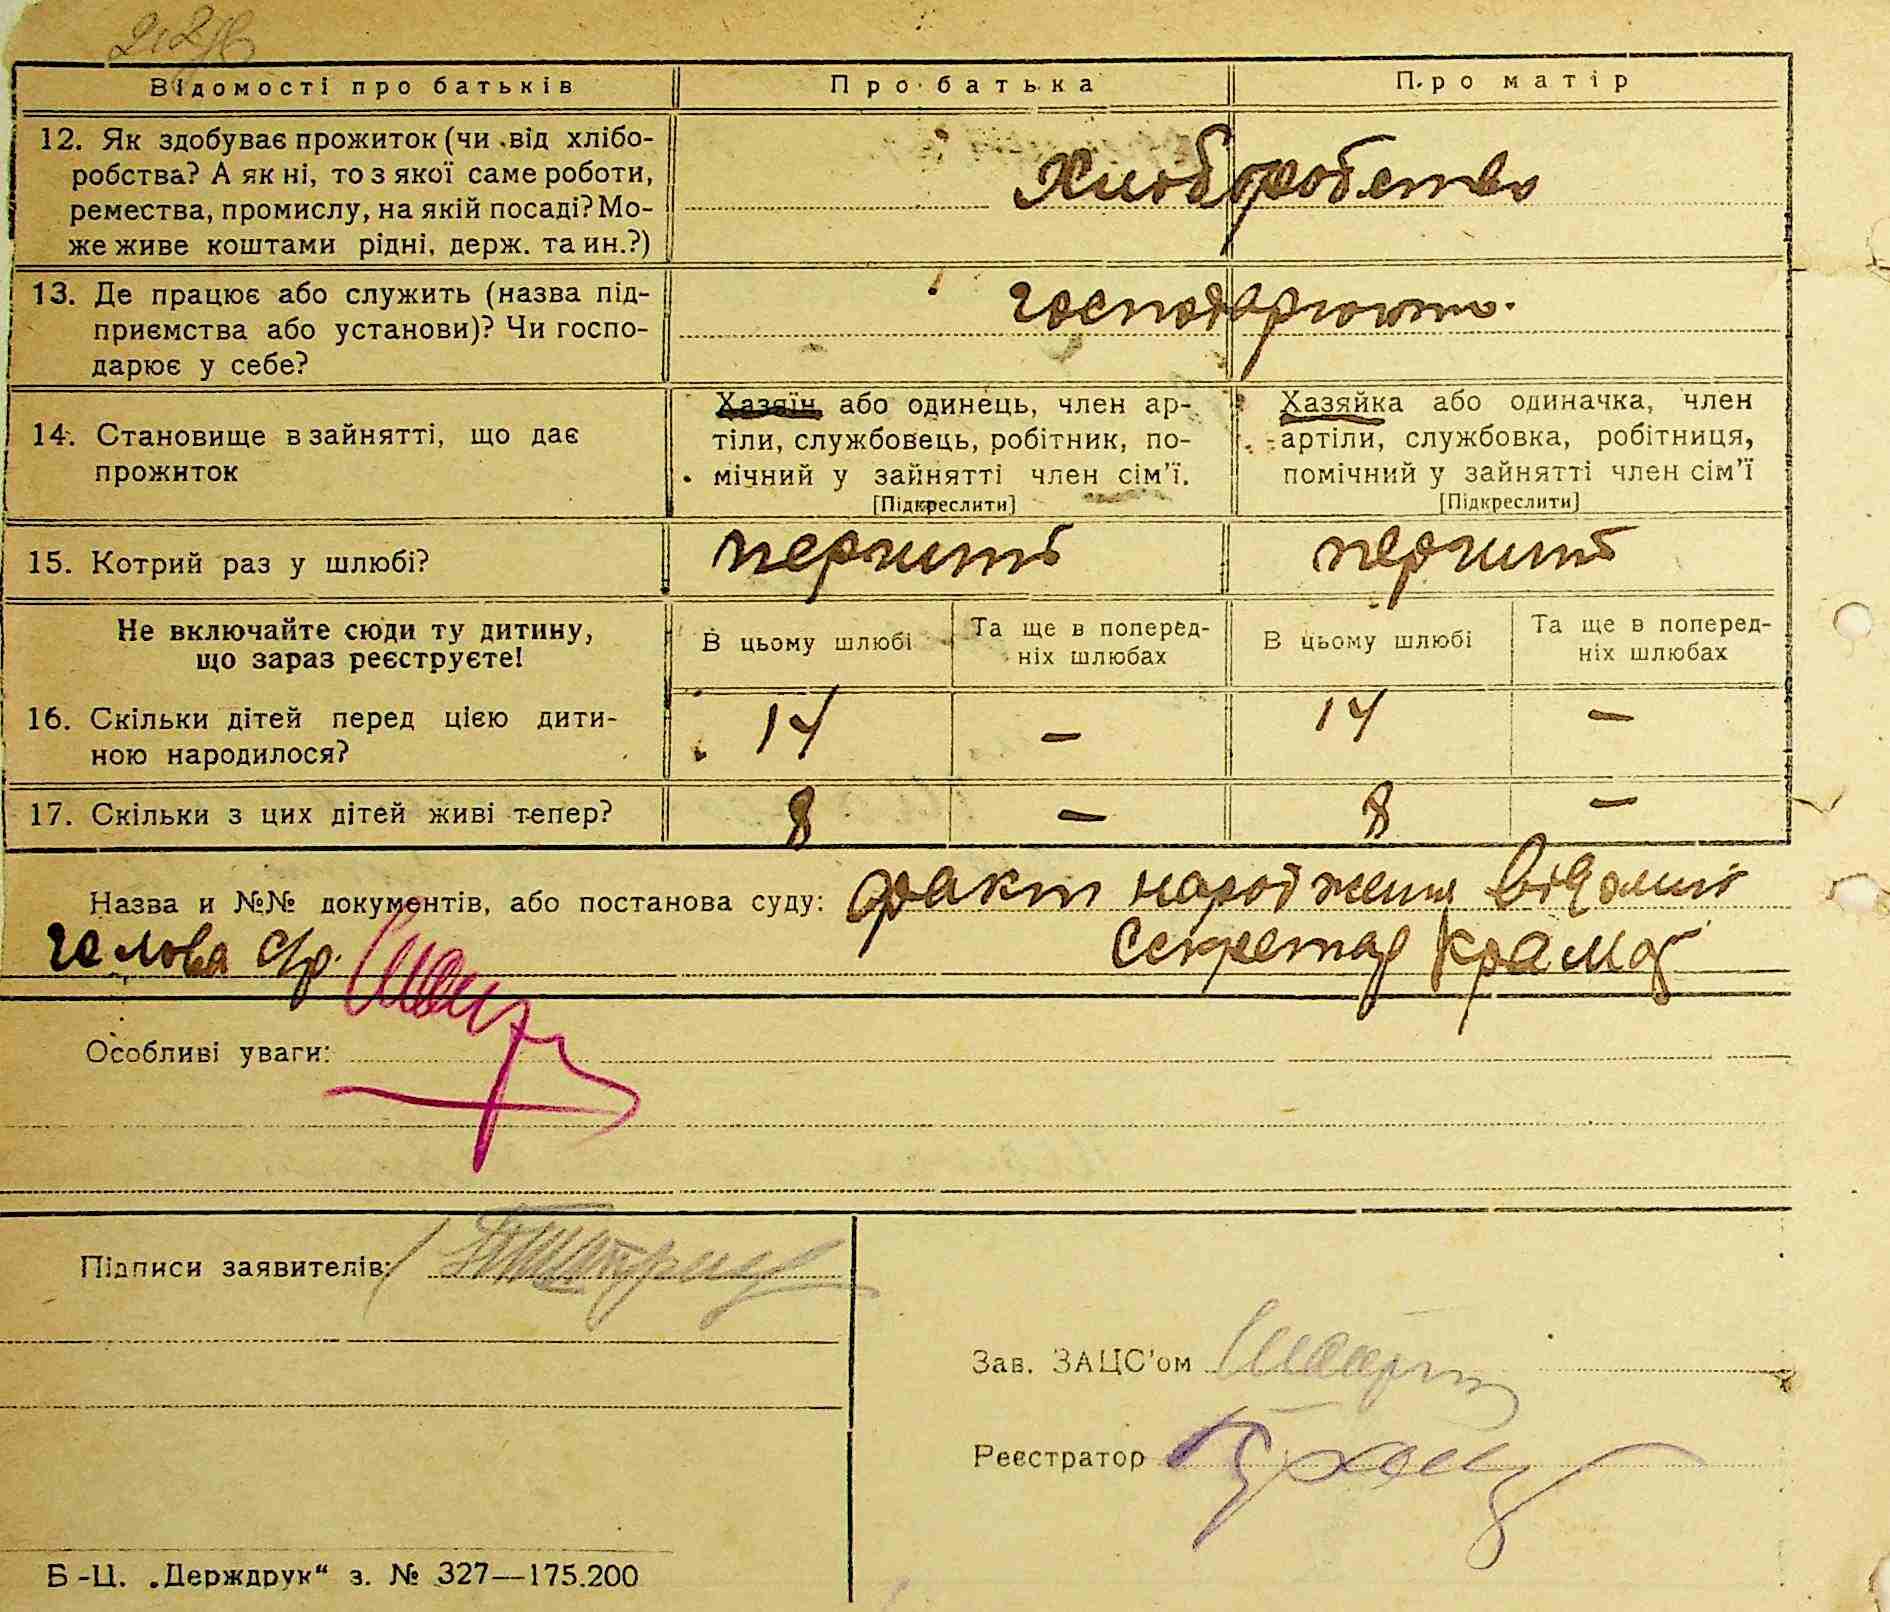 Відомості про батьків Про батька Про матір
12. Як здобуває прожиток (чи від хлібо-
робства? А як ні, то з якої саме роботи,
ремества, промислу, на якій посаді? Мо-
же живе коштами рідні, держ. та ин.?)
Хліборобство
13. Де працює або служить (назва під-
приємства або установи)? Чи госпо-
дарює у себе?
господарюють.
14. Становище в зайнятті, що дає
прожиток
Хазяїн або одинець, член ар-
тіли, службовець, робітник, по-
мічний у зайнятті член сім'ї.
[Підкреслити]
Хазяйка або одиначка, член
артіли, службовка, робітниця,
помічний у зайнятті член сім'ї
[Підкреслити]
15. Котрий раз у шлюбі? перший перший
Не включайте сюди ту дитину,
що зараз реєструєте!
В цьому шлюбі
Та ще в поперед-
ніх шлюбах
В цьому шлюбі
Та ще в поперед-
ніх шлюбах
16. Скільки дітей перед цією дити-
ною народилося?
14 – 14 –
17. Скільки з цих дітей живі тепер? 8 – 8 –
Назва и №№ документів, або постанова суду: факт народження відомий
голова с/р. секретар
Особливі уваги:
Підписи заявителів:
Зав. ЗАЦС'ом
Реєстратор
Б-Ц. „Держдрук“ з. № 327—175.200